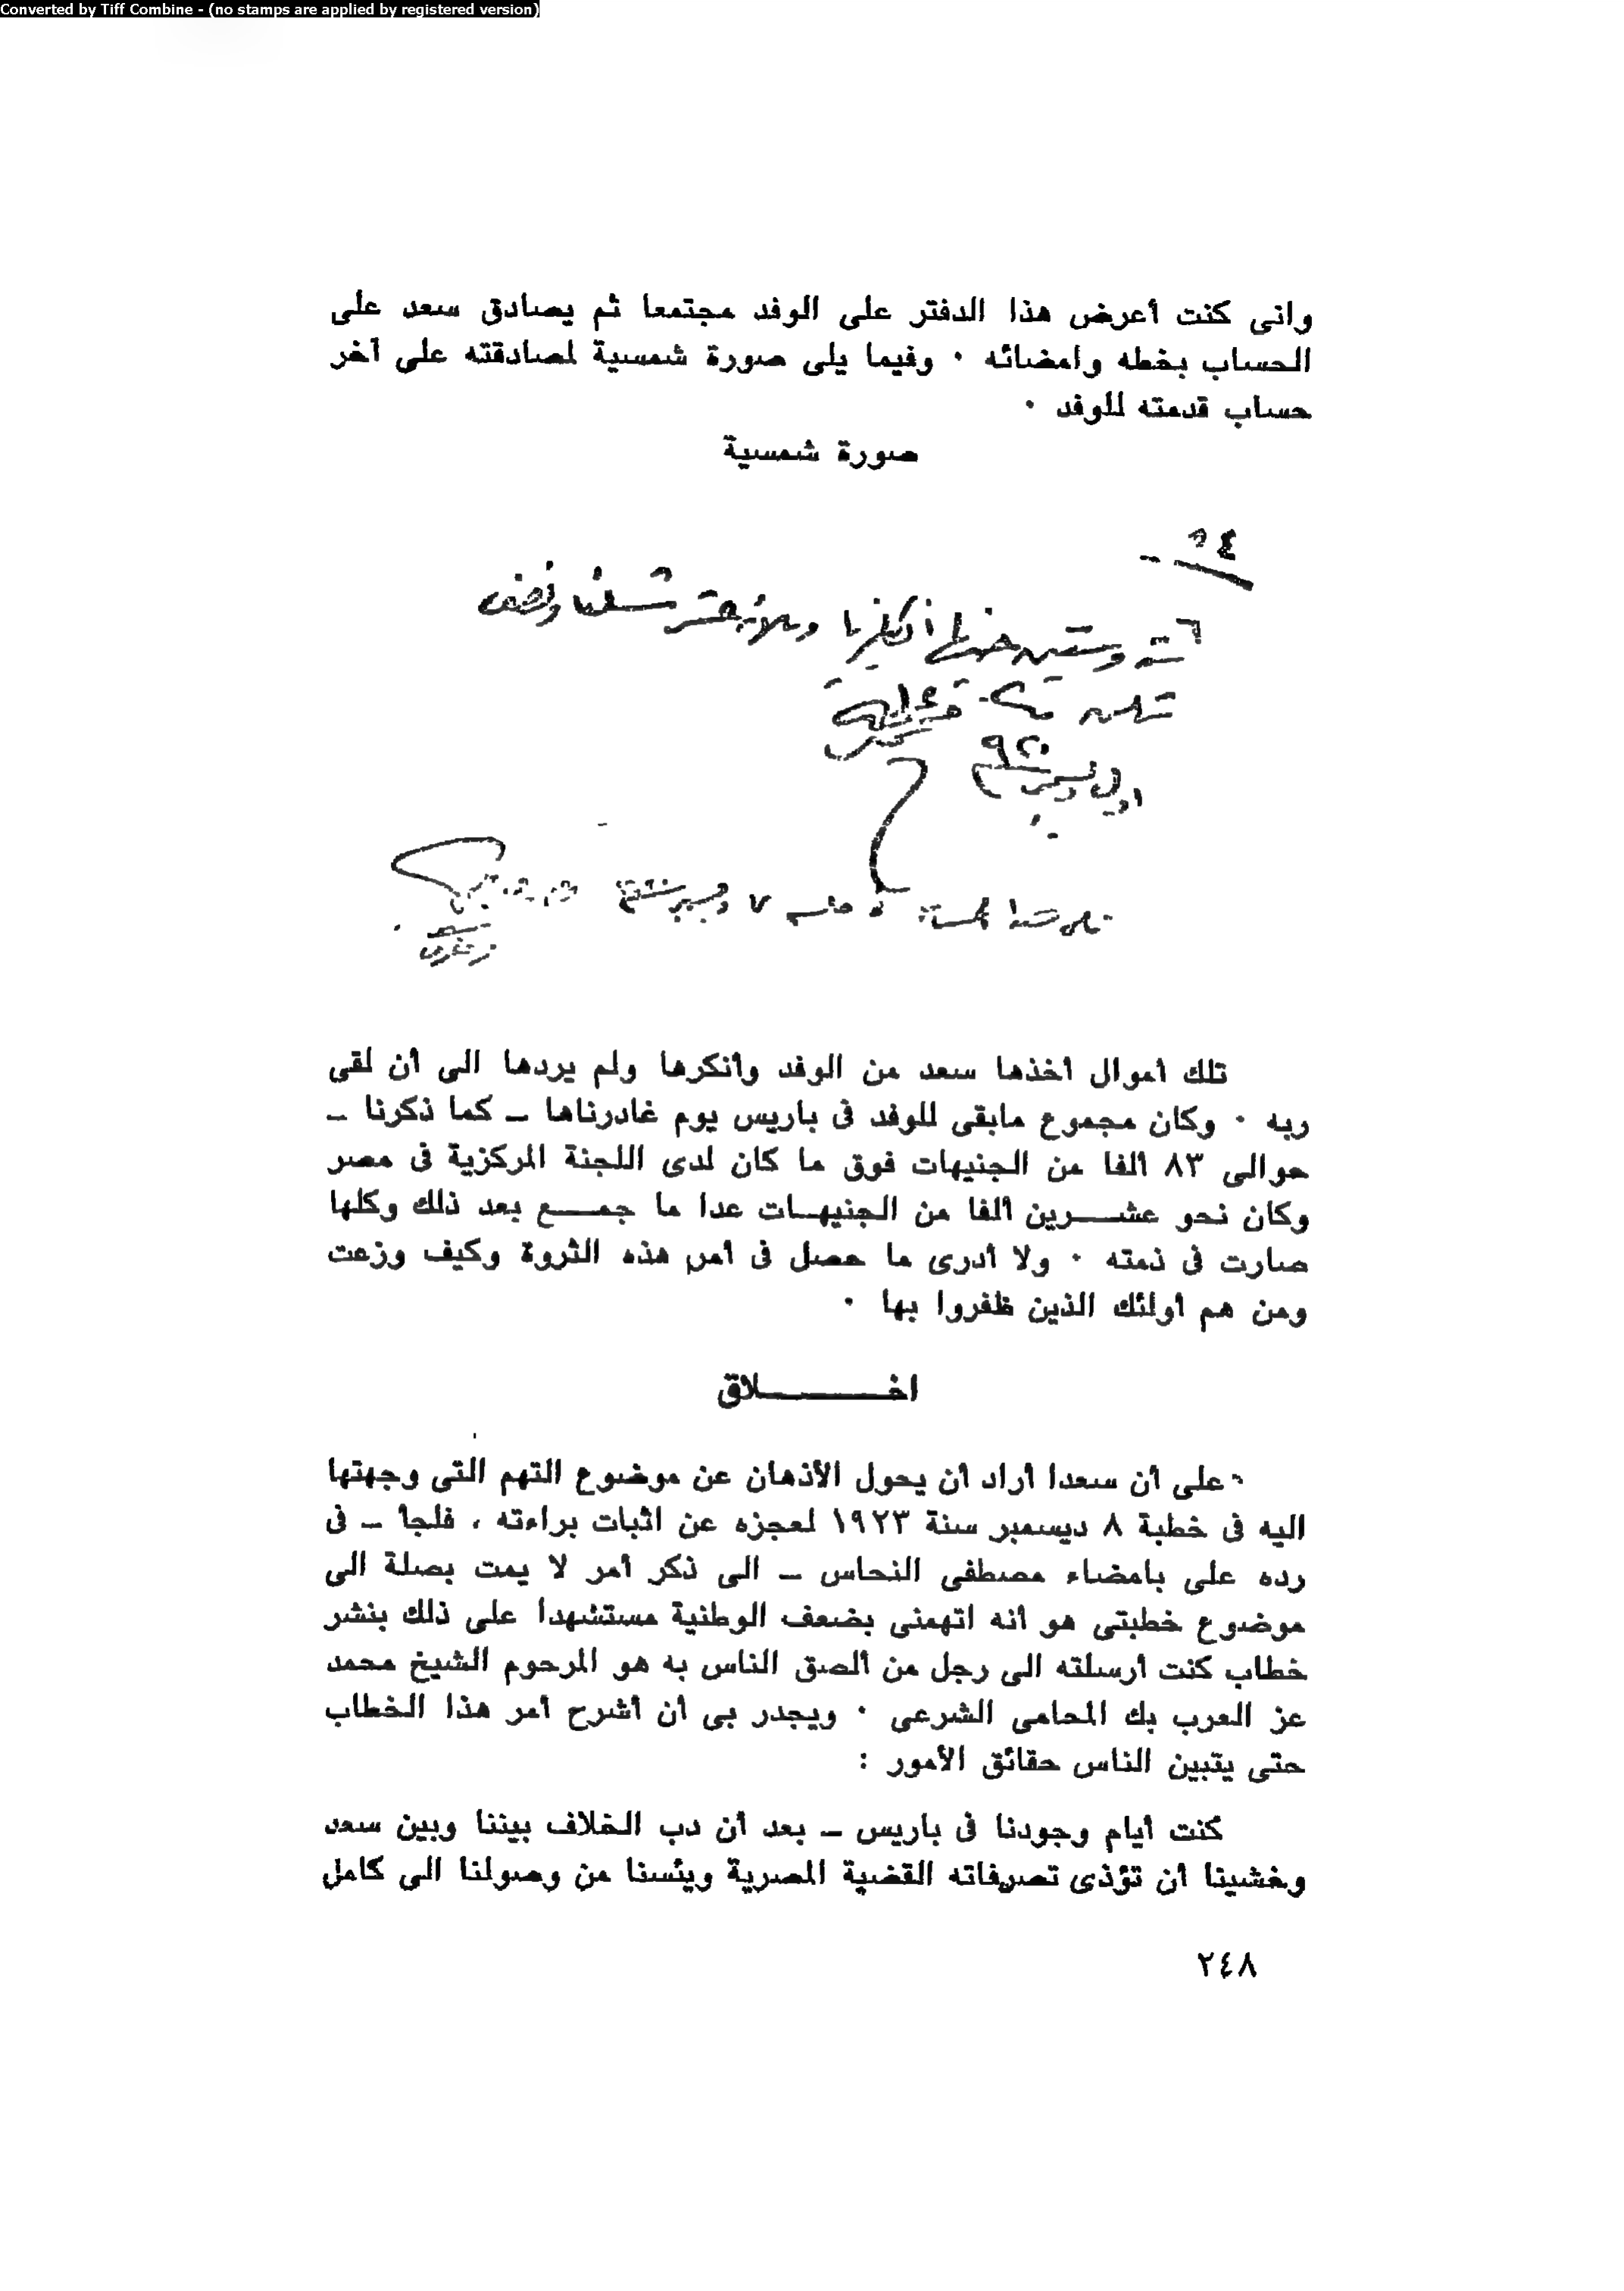 Converted by Tiff Combine - (no stamps are applied by registered version)
وانى كنت أعرض هذا الدفتر على الوفد مجتمعا ثم يصادق سعد على
الحساب بخطه وامضائه ٠ وفيما يلى صورة شمسية لمصادقته على آخر
حساب قدمته للوفد ٠
صورة شمسية
وستين جنيها انكليزيا وثلاثة عشر شلنا ونصف
اول ديسمبر ٩٢٠
٧ ديسمبر سنة
سعد
زغلول
تلك أموال أخذها سعد من الوفد وأنكرها ولم يردها الى أن لقى
ربه ٠ وكان مجموع مابقى للوفد فى باريس يوم غادرناها – كما ذكرنا –
حوالى ٨٣ ألفا من الجنيهات فوق ما كان لدى اللجنة المركزية فى مصر
وكان نحو عشـــرين ألفا من الجنيهـات عدا ما جمـــع بعد ذلك وكلها
صارت فى ذمته ٠ ولا أدرى ما حصل فى أمر هذه الثروة وكيف وزعت
ومن هم أولئك الذين ظفروا بها ٠
اخـــــــــلاق
على أن سعدا أراد أن يحول الأذهان عن موضوع التهم التى وجهتها
اليه فى خطبة ٨ ديسمبر سنة ١٩٢٣ لعجزه عن اثبات براءته ، فلجأ – فى
رده على بامضاء مصطفى النحاس – الى ذكر أمر لا يمت بصلة الى
موضوع خطبتى هو أنه اتهمنى بضعف الوطنية مستشهدا على ذلك بنشر
خطاب كنت أرسلته الى رجل من ألصق الناس به هو المرحوم الشيخ محمد
عز العرب بك المحامى الشرعى ٠ ويجدر بى أن أشرح أمر هذا الخطاب
حتى يتبين الناس حقائق الأمور :
كنت أيام وجودنا فى باريس – بعد أن دب الخلاف بيننا وبين سعد
وخشينا أن تؤذى تصرفاته القضية المصرية ويئسنا من وصولنا الى كامل
٢٤٨